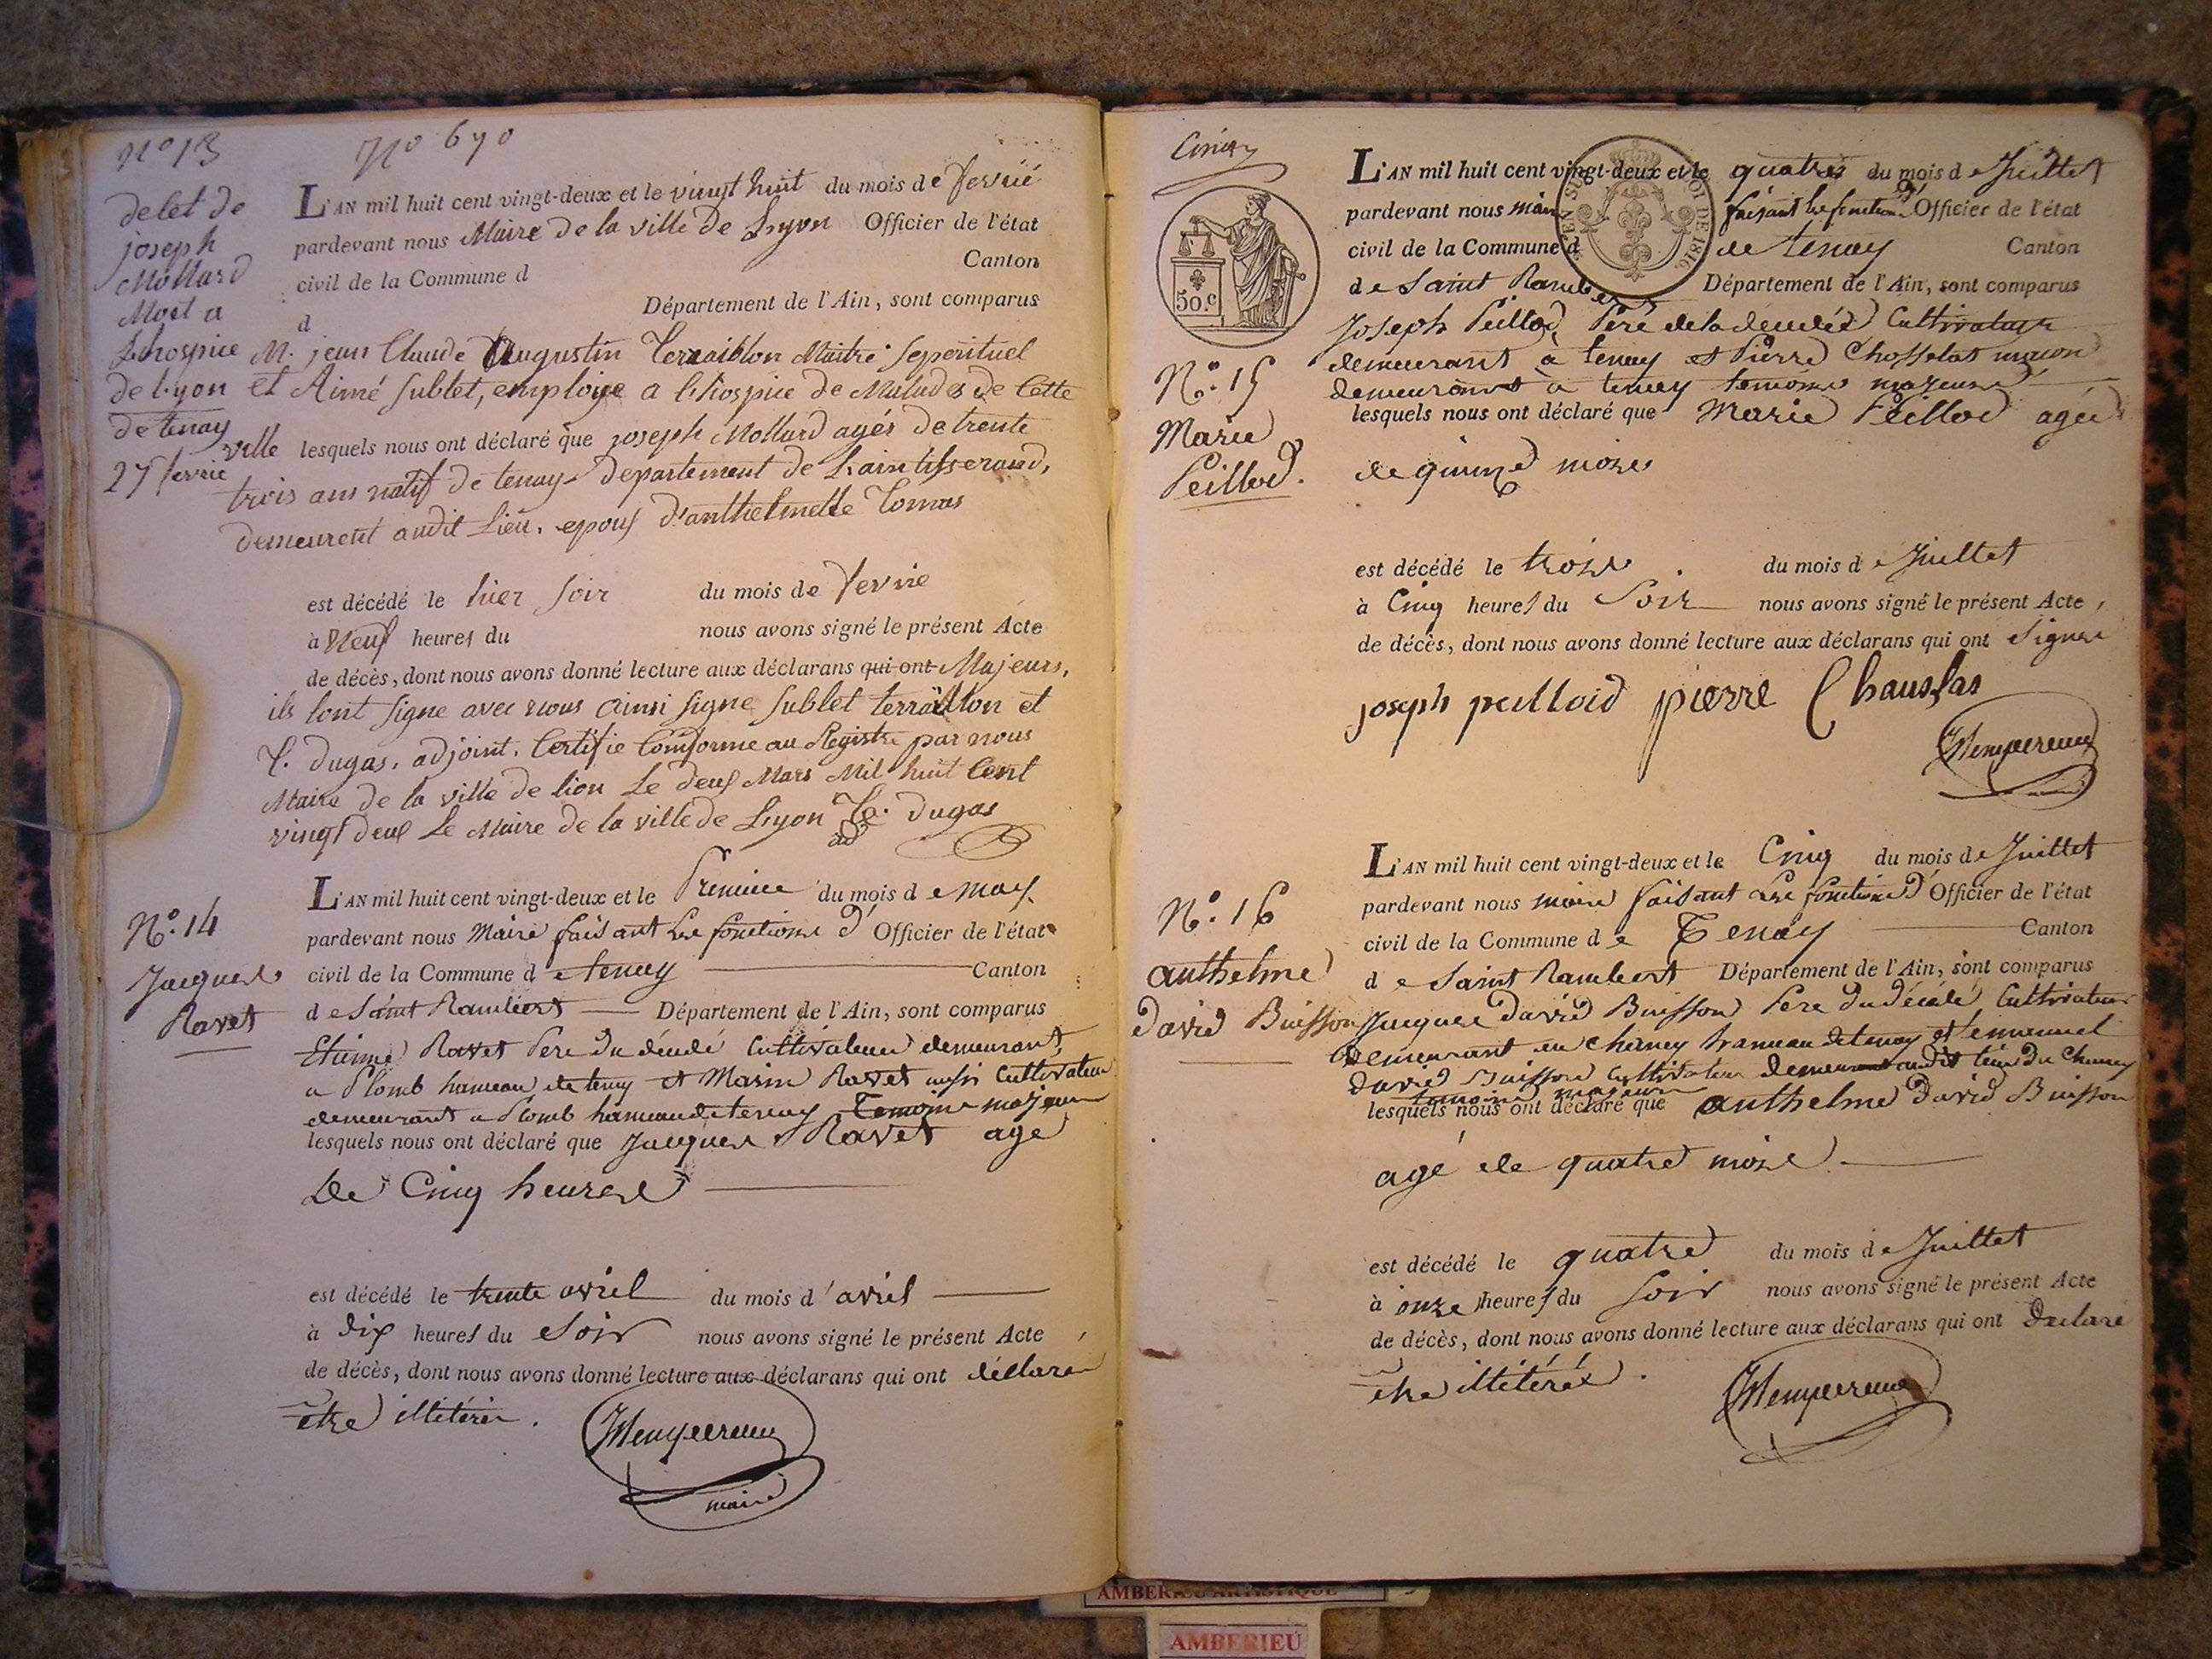 N° 13
N° 670
delet de
joseph
Mollard
Mort a
Lhospice
de Lyon
de tenay
27 fevrie
L'AN mil huit cent vingt-deux et le vingt huit du mois de fevrié
pardevant nous Maire de la ville de Lyon Officier de l'état
civil de la Commune d Canton
d Département de l'Ain, sont comparus
M. jean Claude Augustin Terraillon Maitre Seperituel
et Aimé Sublet, employe a Lhospice de Malades de Cette
ville lesquels nous ont déclaré que joseph Mollard agés de trente
trois ans natif de tenay departement de Lain tisserand,
demeurent audit Lieu. epous d'anthelmette Tomas
est décédé le hier soir du mois de fevrie
à Neuf heures du nous avons signé le présent Acte
de décès, dont nous avons donné lecture aux déclarans qui ont Majeurs,
ils lont signe avec nous ainsi signe Sublet terraillon et
C. dugas, adjoint. Certifie Comforme au Registre par nous
Maire de la ville de lion Le deus Mars Mil huit Cent
vingt deus Le Maire de la ville de Lyon C. dugas
ad
N°. 14
Jacques
Ravet
L'AN mil huit cent vingt-deux et le Premiere du mois de may
pardevant nous Maire faisant Les fonctions d' Officier de l'état
civil de la Commune de tenay Canton
de Saint Rambert Département de l'Ain, sont comparus
Etienne Ravet Pere du décédé Cultivateur demeurant
a Plomb hameau de tenay et Marin Ravet aussi Cultivateur
demeurant a Plomb hameau de tenay Temoins majeurs
lesquels nous ont déclaré que Jacques Ravet age
De Cinq heures
est décédé le trente avril du mois d'avril
à dix heures du Soir nous avons signé le présent Acte
de décès, dont nous avons donné lecture aux déclarans qui ont déclaré
être illitérés.
maire
L'AN mil huit cent vingt-deux et le quatre du mois de Juillet
pardevant nous maire faisant les fonctions d' Officier de l'état
civil de la Commune d de tenay Canton
de Saint Rambert Département de l'Ain, sont comparus
50.c
ROI DE 1816
N°. 15
Marie
Peillod.
Joseph Peillod Pere de la décédée Cultivateur
demeurant à tenay et Pierre Chosselat maçon
demeurant à tenay temoins majeurs
lesquels nous ont déclaré que Marie Peillod agée
de quinze mois
est décédé le trois du mois de Juillet
à Cinq heures du Soir nous avons signé le présent Acte,
de décès, dont nous avons donné lecture aux déclarans qui ont Signer
joseph peilloid pierre Chauslas
N°. 16
anthelme
David Buisson
L'AN mil huit cent vingt-deux et le Cinq du mois de Juillet
pardevant nous maire faisant Les fonctions d' Officier de l'état
civil de la Commune de Tenay Canton
de Saint Rambert Département de l'Ain, sont comparus
Jacques David Buisson Pere du décédé Cultivateur
Demeurant en Charney hameau de tenay et emanuel
David Buisson Cultivateur demeurant audit lieu du Charney
temoins majeurs
lesquels nous ont déclaré que anthelme David Buisson
agé de quatre mois
est décédé le quatre du mois de Juillet
à onze heures du Soir nous avons signé le présent Acte
de décès, dont nous avons donné lecture aux déclarans qui ont Declaré
être illitérés.
AMBERIEU ARTISTIQUE
AMBERIEU